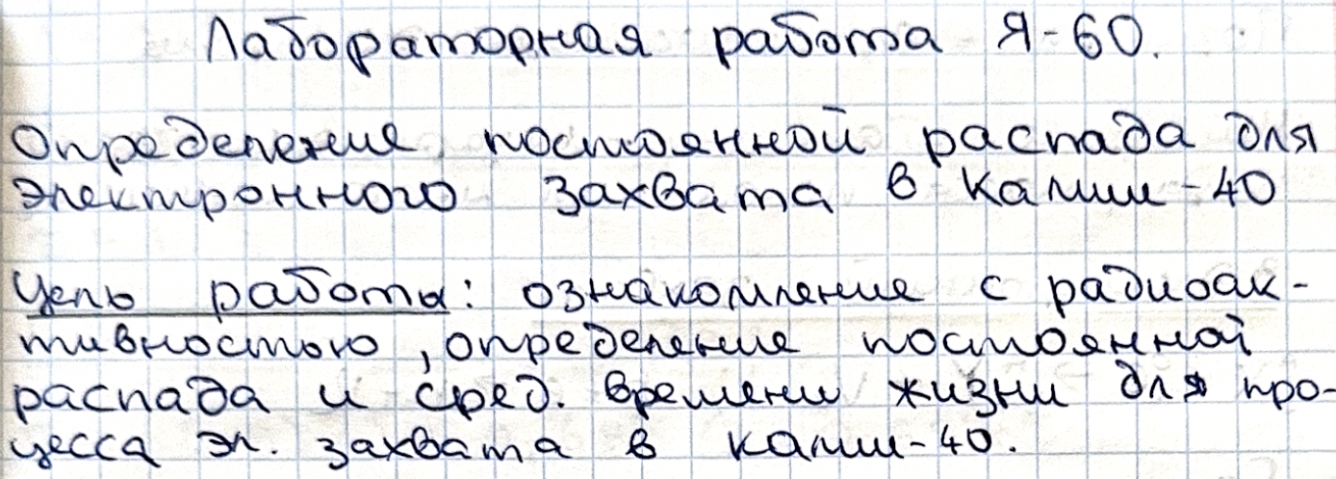 Лабораторная работа Я-60.
Определение постоянной распада для
электронного захвата в калии-40
Цель работы: ознакомление с радиоак-
тивностью, определение постоянной
распада и сред. времени жизни для про-
цесса эл. захвата в калии-40.